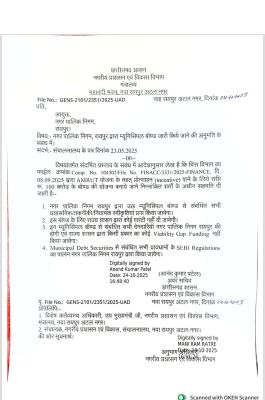 छत्तीसगढ़ शासन
नगरीय प्रशासन एवं विकास विभाग
मंत्रालय
महानदी भवन, नवा रायपुर अटल नगर
File No.: GENS-2101/2351/2025-UAD नवा रायपुर अटल नगर, दिनांक
प्रति,
आयुक्त,
नगर पालिक निगम,
रायपुर।
विषय:- नगर पालिक निगम, रायपुर द्वारा म्युनिसिपल बॉण्ड जारी किये जाने की अनुमति के संबंध में।
संदर्भ:- संचालनालय के पत्र दिनांक 23.05.2025
--00--
विषयांतर्गत संदर्भित प्रस्ताव के संबंध में आदेशानुसार लेख है कि वित्त विभाग का
फाईल क्रमांक Comp. No. 104502/File No. FINACC/3331/2025-FINANCE, दि.
03.09.2025 द्वारा AMRUT योजना के तहत् प्रोत्साहन (incentive) पाने के लिए राशि
रू. 100 करोड़ के बॉण्ड की योजना बनाये जाने निम्नांकित शर्तों के अधीन सहमति दी
जाती है:-
1. नगर पालिक निगम रायपुर द्वारा उक्त म्युनिसिपल बॉण्ड से संबंधित सभी
प्रशासनिक/तकनीकी/नियामक स्वीकृतियां प्राप्त किया जावेगा।
2. इस बॉण्ड के लिए राज्य शासन द्वारा कोई गारंटी नहीं दी जावेगी।
3. इस बॉण्ड से संबंधित सभी देनदारियां नगर पालिक निगम रायपुर की
होगी एवं राज्य शासन द्वारा किसी प्रकार का कोई Viability Gap Funding नहीं
किया जावेगा।
4. Municipal Debt Securities से संबंधित सभी प्रावधानों के SEBI Regulations
का पालन नगर पालिक निगम रायपुर द्वारा किया जावेगा।
Digitally signed by
Anand Kumar Patel
Date: 24-10-2025
16:48:40
(आनंद कुमार पटेल)
अवर सचिव
छत्तीसगढ़ शासन
नगरीय प्रशासन एवं विकास विभाग
पृ. File No.: GENS-2101/2351/2025-UAD नवा रायपुर अटल नगर, दिनांक
प्रतिलिपि:-
1. विशेष कर्तव्यस्थ अधिकारी, उप मुख्यमंत्री जी, नगरीय प्रशासन एवं विकास विभाग,
मंत्रालय, नवा रायपुर अटल नगर।
2. संचालक, नगरीय प्रशासन एवं विकास, संचालनालय, नवा रायपुर अटल नगर।
की ओर सूचनार्थ।
Digitally signed by
MANI RAM RATRE
Date: 24-10-2025
अनुभाग अधिकारी
नगरीय प्रशासन एवं विकास विभाग
Scanned with OKEN Scanner